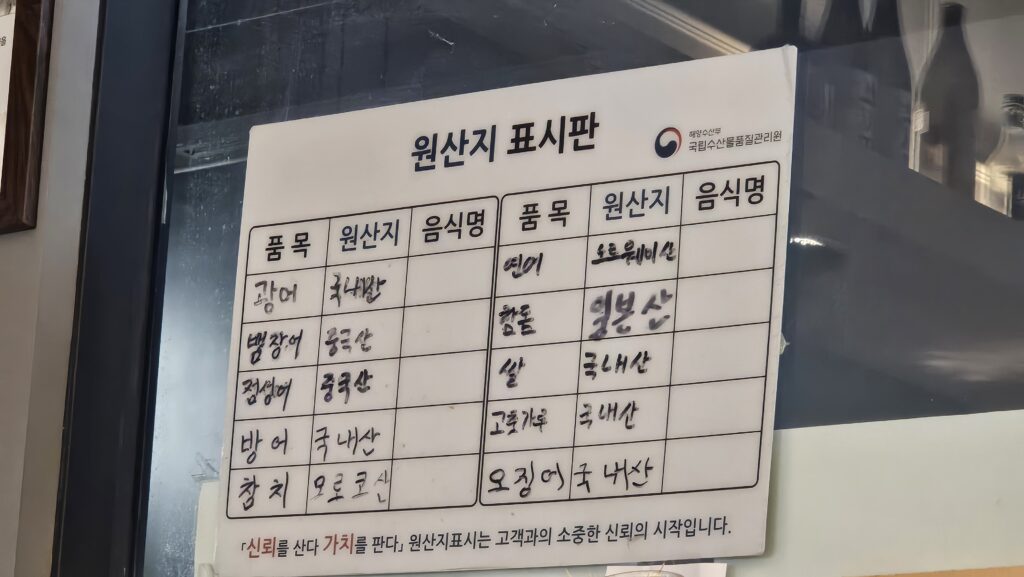 원산지 표시판
해양수산부
국립수산물품질관리원
품 목 원산지 음식명
광어 국내산
뱀장어 중국산
점성어 중국산
방어 국내산
참치 모로코산
품 목 원산지 음식명
연어 노르웨이산
참돔 일본산
쌀 국내산
고춧가루 국내산
오징어 국내산
「신뢰를 산다 가치를 판다」 원산지표시는 고객과의 소중한 신뢰의 시작입니다.